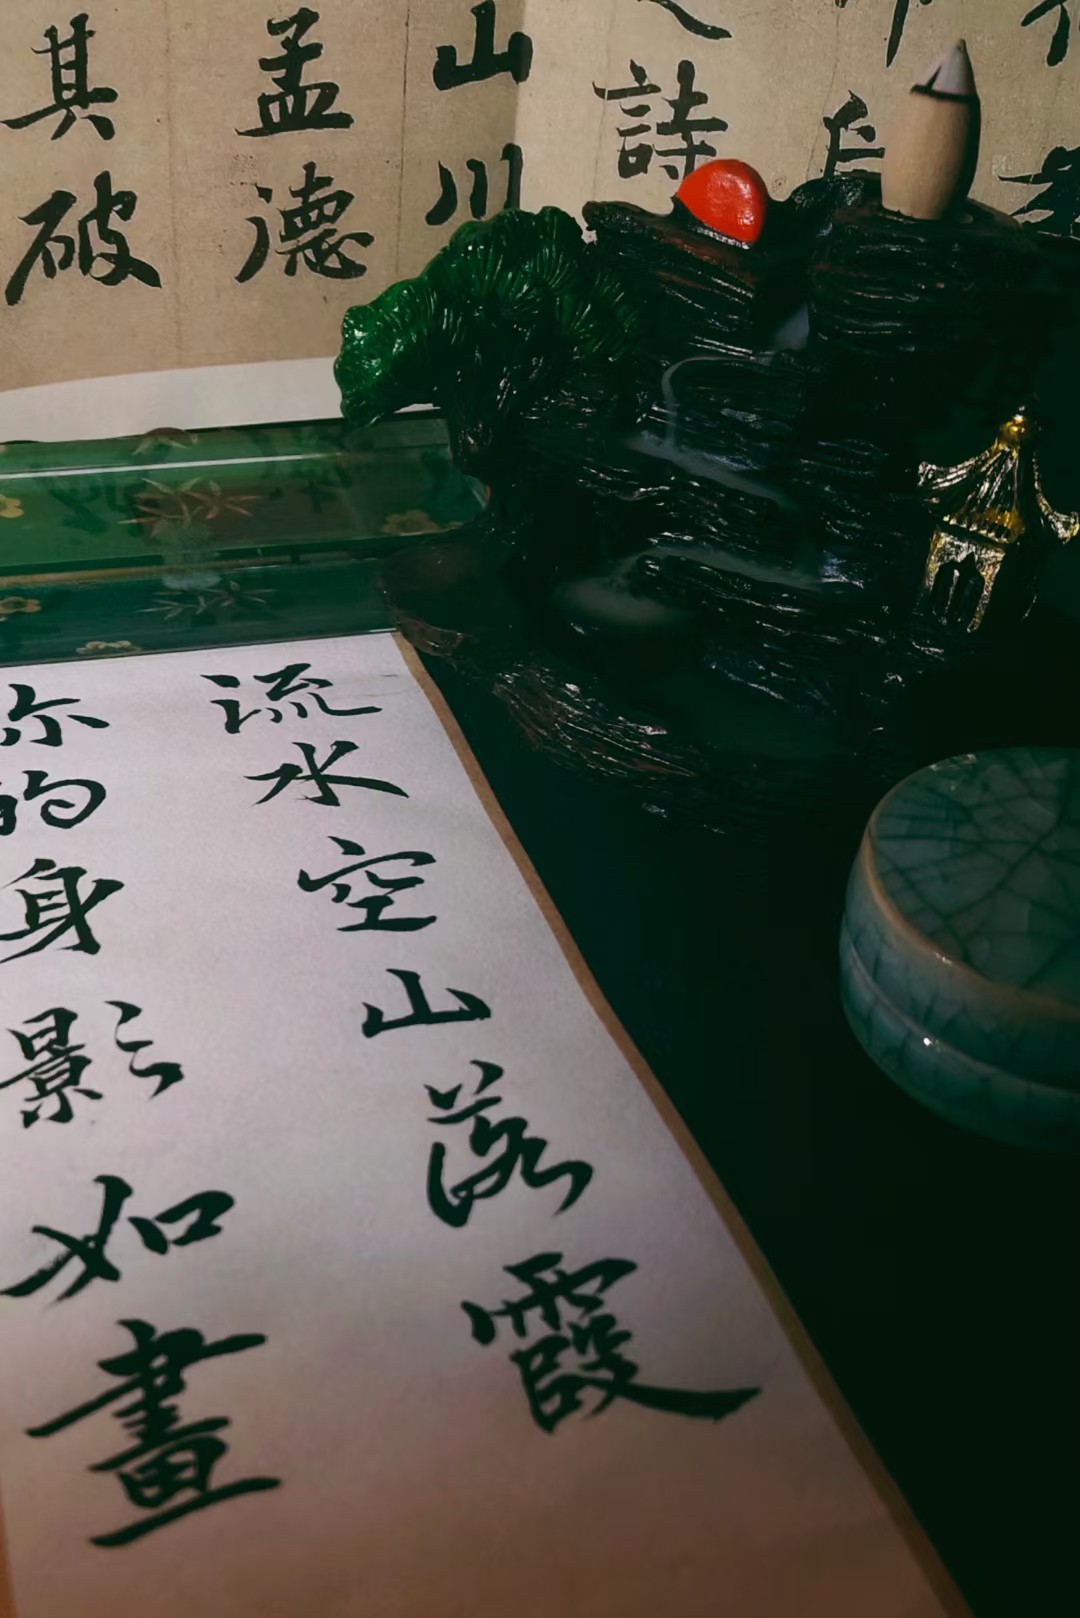 詩
山川
孟德
其破
流水空山落霞
你的身影如畫